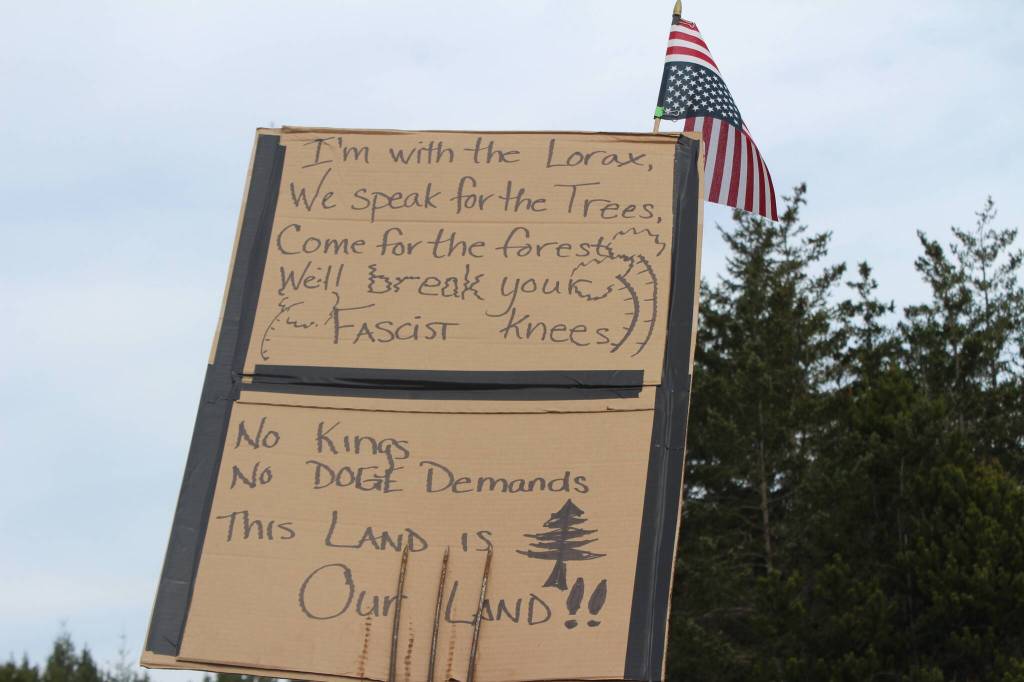 I'm with the Lorax,
We speak for the Trees,
Come for the forest
We'll break your
Fascist knees
No Kings
No DOGE Demands
This LAND is
Our LAND!!